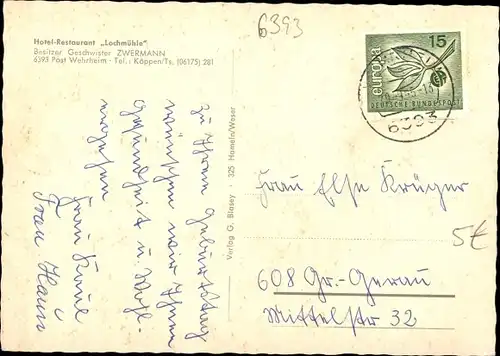 6393
Hotel-Restaurant „Lochmühle"
Besitzer Geschwister ZWERMANN
6393 Post Wehrheim - Tel.: Köppern/Ts. (06175) 281
europa
15
DEUTSCHE BUNDESPOST
6393
Zu Ihrem Geburtstag
wünschen wir Ihnen
Gesundheit u. Wohl-
ergehen
Frau Kaul
Frau Hain
Verlag G. Blasey · 325 Hameln/Weser
Frau Else Krüger
5€
608 Gr.-Gerau
Mittelstr 32